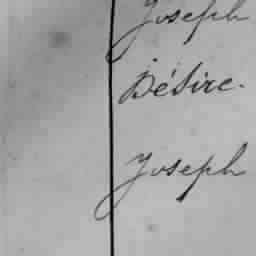 Joseph
Désire.
Joseph